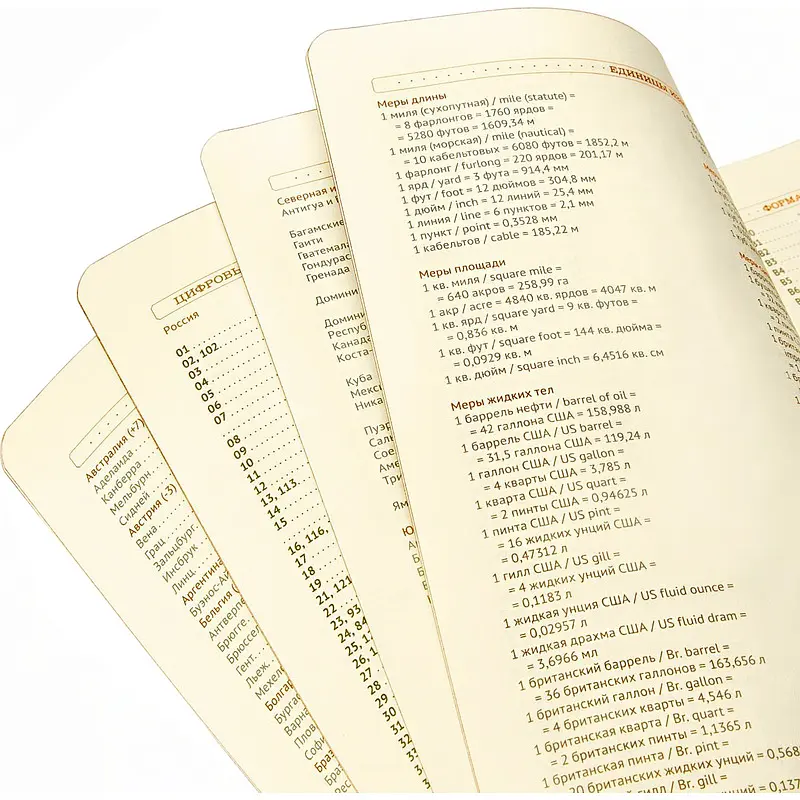 ЕДИНИЦЫ
Меры длины
1 миля (сухопутная) / mile (statute) =
= 8 фарлонгов = 1760 ярдов =
= 5280 футов = 1609,34 м
1 миля (морская) / mile (nautical) =
= 10 кабельтовых = 6080 футов = 1852,2 м
1 фарлонг / furlong = 220 ярдов = 201,17 м
1 ярд / yard = 3 фута = 914,4 мм
1 фут / foot = 12 дюймов = 304,8 мм
1 дюйм / inch = 12 линий = 25,4 мм
1 линия / line = 6 пунктов = 2,1 мм
1 пункт / point = 0,3528 мм
1 кабельтов / cable = 185,22 м
Меры площади
1 кв. миля / square mile =
= 640 акров = 258,99 га
1 акр / acre = 4840 кв. ярдов = 4047 кв. м
1 кв. ярд / square yard = 9 кв. футов =
= 0,836 кв. м
1 кв. фут / square foot = 144 кв. дюйма =
= 0,0929 кв. м
1 кв. дюйм / square inch = 6,4516 кв. см
Меры жидких тел
1 баррель нефти / barrel of oil =
= 42 галлона США = 158,988 л
1 баррель США / US barrel =
= 31,5 галлона США = 119,24 л
1 галлон США / US gallon =
= 4 кварты США = 3,785 л
1 кварта США / US quart =
= 2 пинты США = 0,94625 л
1 пинта США / US pint =
= 16 жидких унций США =
= 0,47312 л
1 гилл США / US gill =
= 4 жидких унций США =
= 0,1183 л
1 жидкая унция США / US fluid ounce =
= 0,02957 л
1 жидкая драхма США / US fluid dram =
= 3,6966 мл
1 британский баррель / Br. barrel =
= 36 британских галлонов = 163,656 л
1 британский галлон / Br. gallon =
= 4 британских кварты = 4,546 л
1 британская кварта / Br. quart =
= 2 британских пинты = 1,1365 л
1 британская пинта / Br. pint =
20 британских жидких унций = 0,568
гилл / Br. gill =
= 0,137
Северная и
Антигуа и
Багамские
Гаити
Гватемал
Гондурас
Гренада
Домини
Домини
Респуб
Канада
Коста-
Куба
Мекс
Ника
Пуэр
Саль
Сое
Аме
Три
Ям
ЦИФРОВЫ
Россия
01
02, 102
03
04
05
06
07
08
09
10
11
12
13, 113
14
15
16, 116,
17
18
19
21, 121
22
23, 93
24, 84
25, 1
26, 1
27
28
29
30
31
32
Австралия (+7)
Аделаида
Канберра
Мельбурн
Сидней
Австрия (-3)
Вена
Грац
Зальцбург
Инсбрук
Линц
Аргентина
Буэнос-Ай
Бельгия (
Антверпе
Брюгге
Брюссел
Гент
Льеж
Мехел
Болгар
Бургас
Варна
Плов
Софи
Браз
Браз
ФОРМА
B3
B4
B5